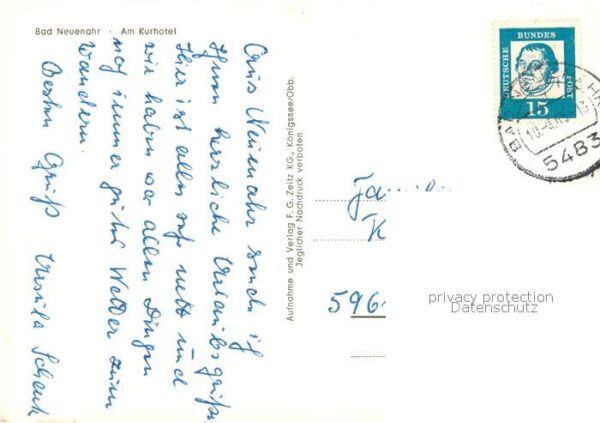 Bad Neuenahr · Am Kurhotel
Aus Neuenahr sende ich
Ihnen herzliche Urlaubsgrüße.
Hier ist alles sehr nett und
wir haben vor allen Dingen
noch immer gutes Wetter zum
Wandern.
Besten Gruß Ursula Schenk
Aufnahme und Verlag F. G. Zeitz KG., Königssee/Obb.
Jeglicher Nachdruck verboten
DEUTSCHE BUNDES POST
15
5483
Fa
K
596
privacy protection
Datenschutz